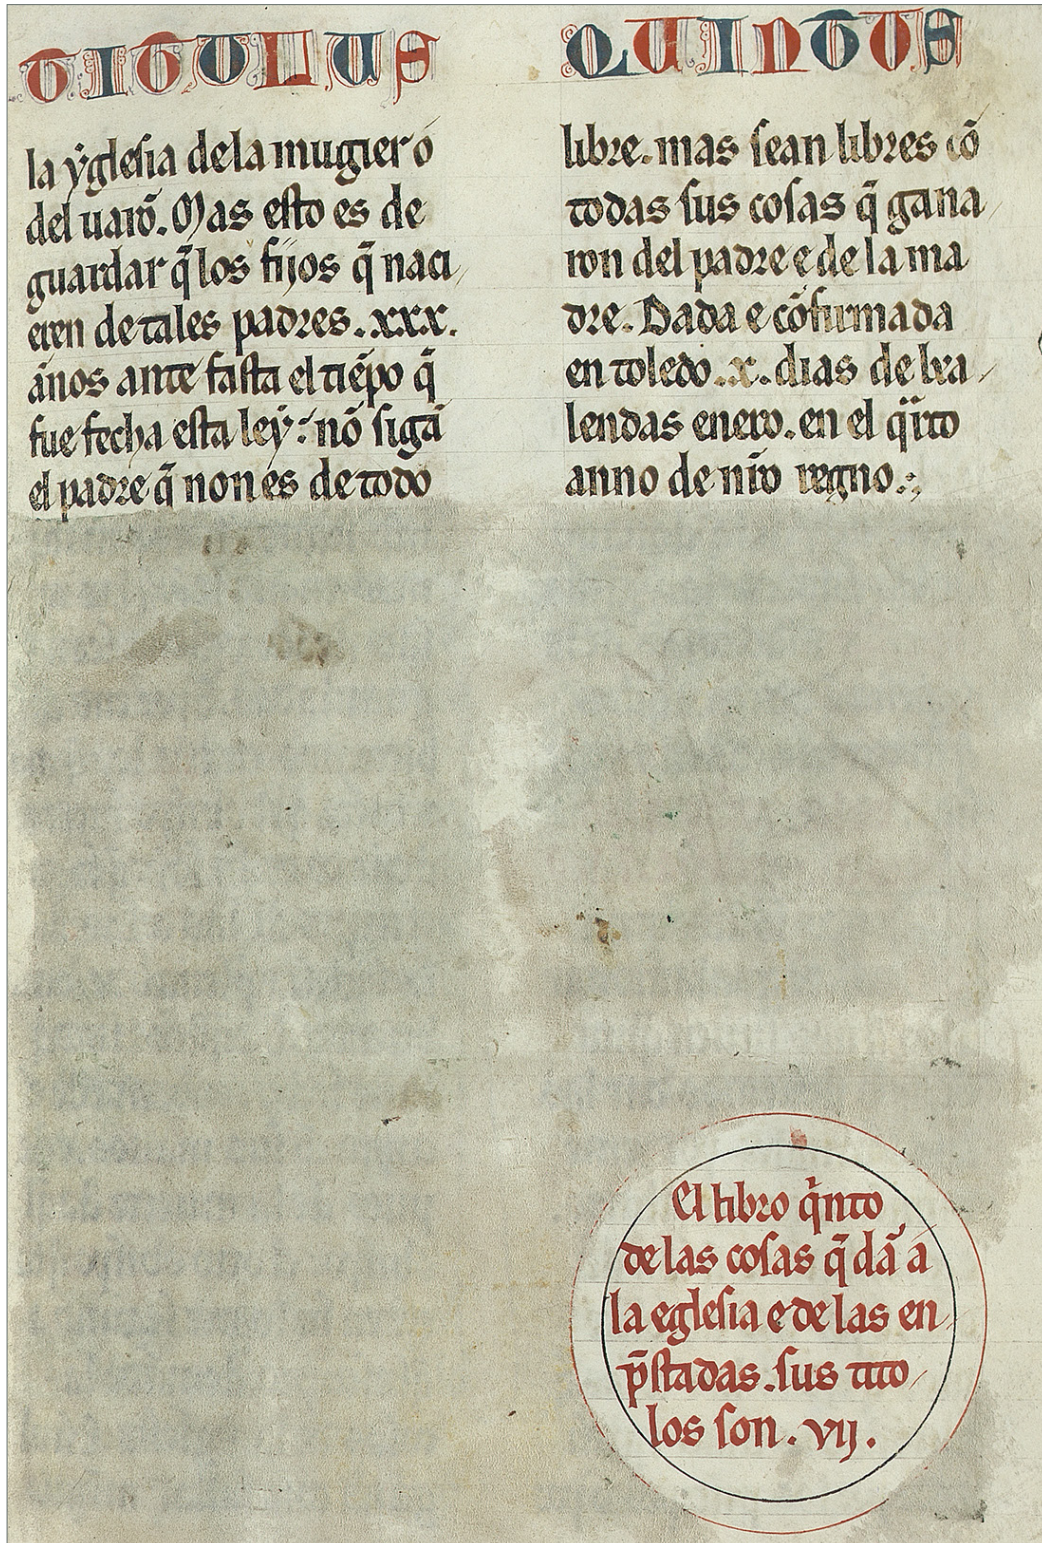 TITULUS QUINTUS
la ẏglesia dela mugier o
del uarõ. Mas esto es de
guardar q̃ los fijos q̃ naci
eren de tales padres. xxx.
ãnos ante fasta el tiẽpo q̃
fue fecha esta leẏ: nõ sigã
el padre q̃ non es de todo
libre. mas sean libres cõ
todas sus cosas q̃ gana
ron del padre e de la ma
dre. Dada e cõfirmada
en toledo. x. dias de kxa
lendas enero. en el q̃rto
anno de nr̃o regno.
El libro q̃nto
de las cosas q̃ dã a
la eglesia e de las en
p̃stadas. sus tito
los son. vij.